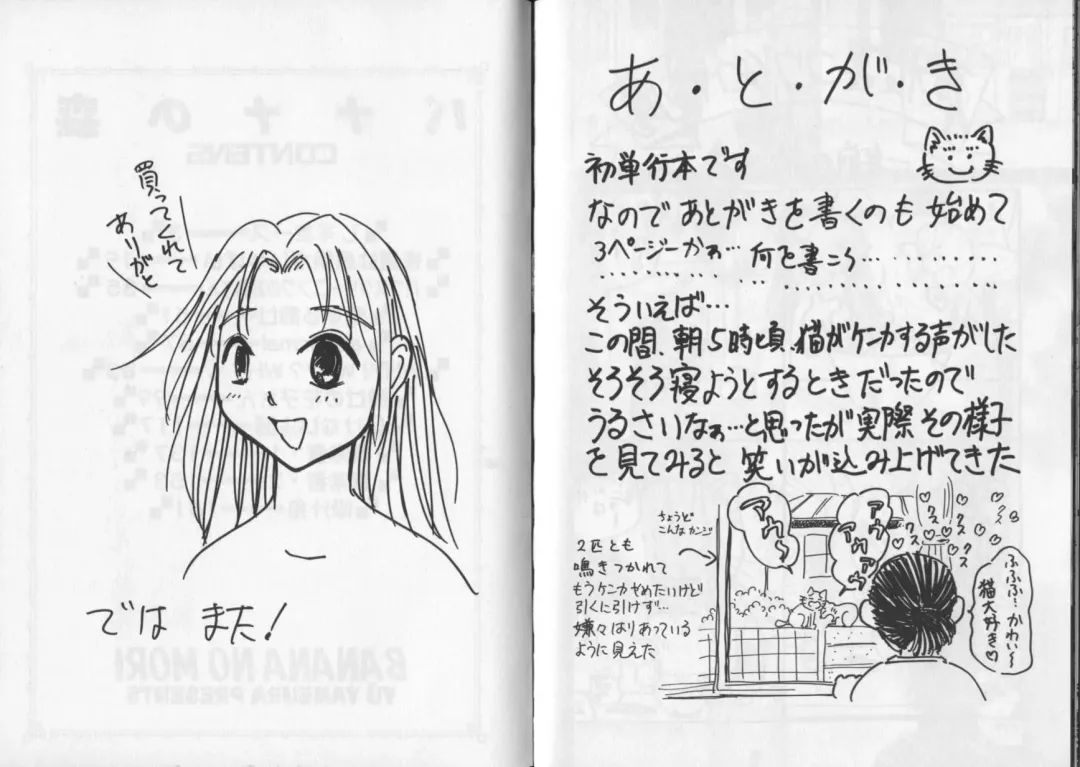 あ・と・が・き
初単行本です
なのであとがきを書くのも始めて
3ページーかぁ… 何を書こう…
そういえば…
この間、朝5時頃、猫がケンカする声がした
そろそろ寝ようとするときだったので
うるさいなぁ…と思ったが実際その様子
を見てみると 笑いが込み上げてきた
ちょうど
こんなカンジ
2匹とも
鳴きつかれて
もうケンカやめたいけど
引くに引けず…
嫌々はりあっている
ように見えた
アウ〜
アウ
アウアウ
クス
クス
クス
クス
クス
ふふふ…かわい〜
猫大好き♡
買ってくれて
ありがと
では また!
バナナの森
CONTENS
BANANA NO MORI
YU YAMEURA PRESENTS